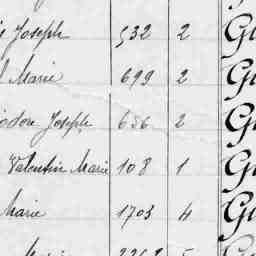 Joseph 532 2 G
Marie 699 2 G
Joseph 656 2 G
Valentin Marie 108 1 G
Marie 1703 4 G